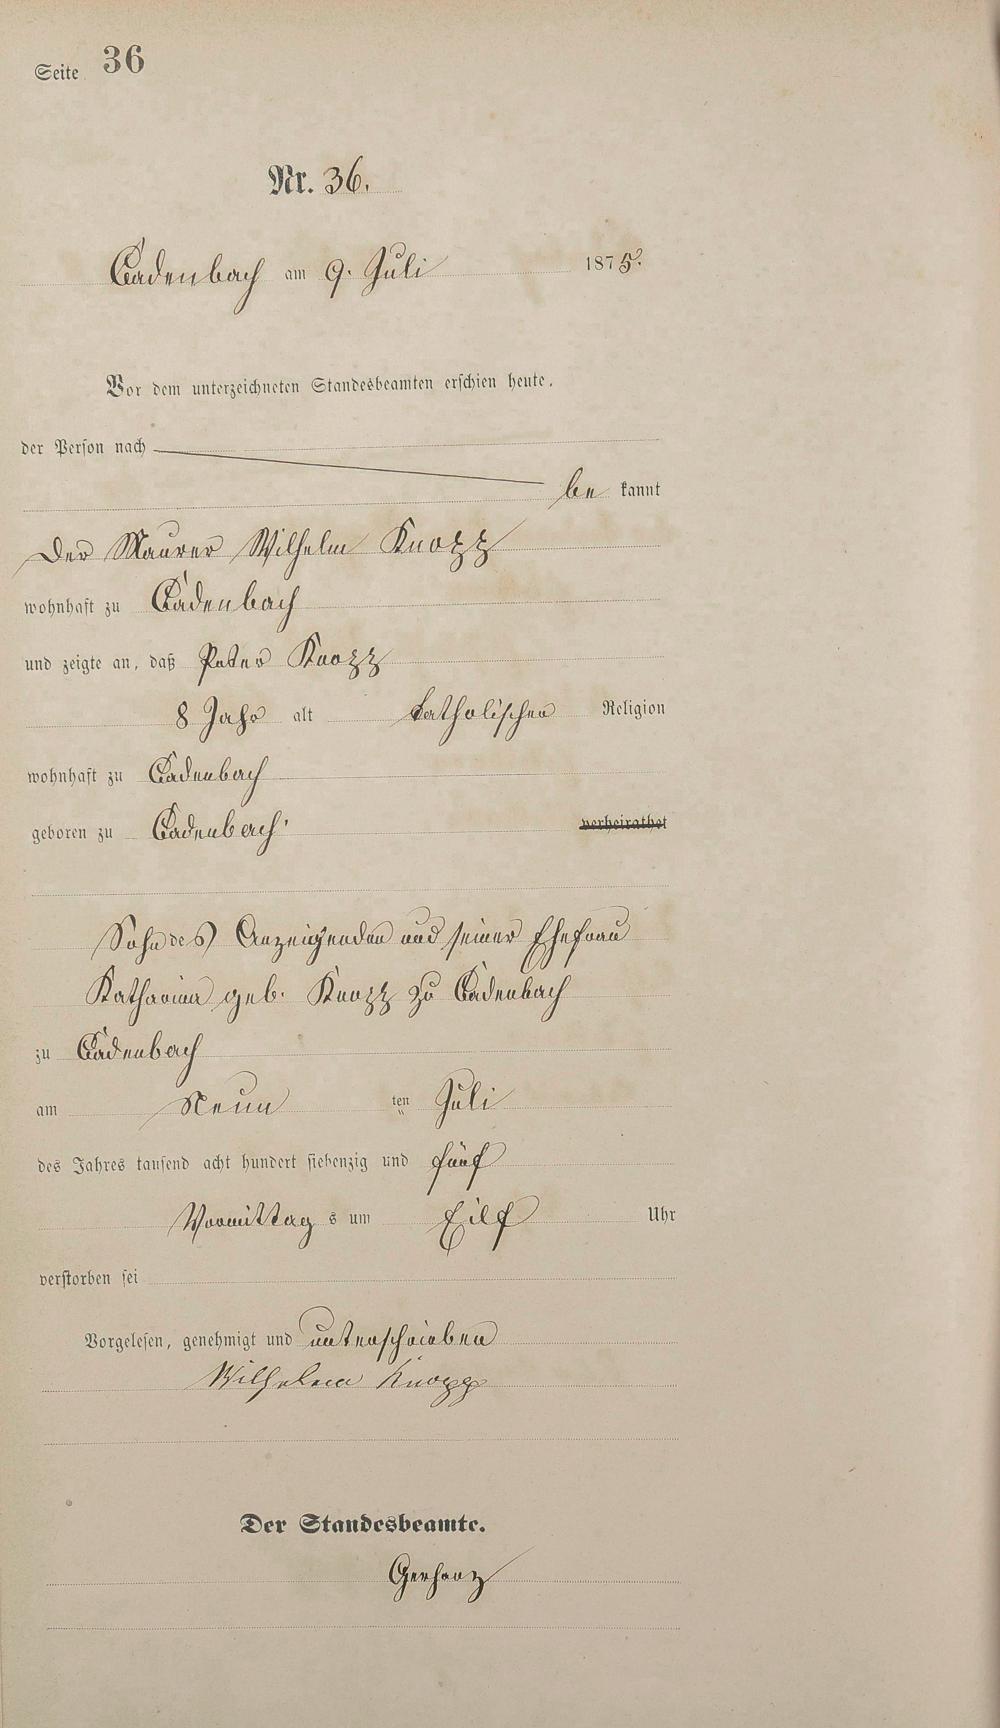 Seite 36
Nr. 36.
Cadenbach am 9. Juli 1875.
Vor dem unterzeichneten Standesbeamten erschien heute,
der Person nach
be kannt
Der Maurer Wilhelm Knopp
wohnhaft zu Cadenbach
und zeigte an, daß Peter Knopp
8 Jahr alt katholischer Religion
wohnhaft zu Cadenbach
geboren zu Cadenbach verheirathet
Sohn des Anzeigenden und seiner Ehefrau
Katharina geb. Knopp zu Cadenbach
zu Cadenbach
am Neun ten Juli
des Jahres tausend acht hundert siebenzig und fünf
Vormittag s um Eilf Uhr
verstorben sei
Vorgelesen, genehmigt und unterschrieben
Wilhelm Knopp
Der Standesbeamte.
Gerharz